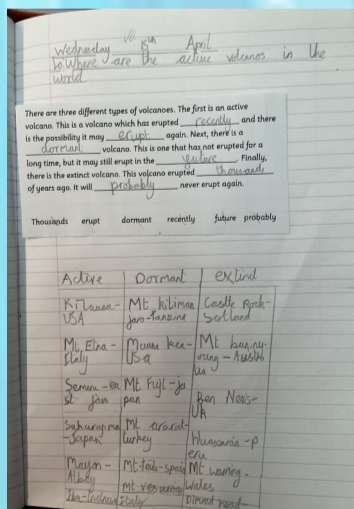 Wednesday 15th April
Lo: Where are the active volcanos in the
world
There are three different types of volcanoes. The first is an active
volcano. This is a volcano which has erupted recently and there
is the possibility it may erupt again. Next, there is a
dormant volcano. This is one that has not erupted for a
long time, but it may still erupt in the future. Finally,
there is the extinct volcano. This volcano erupted thousands
of years ago. It will probably never erupt again.
Thousands erupt dormant recently future probably
Active Dormant extinct
Kilauea- Mt kiliman Castle Rock-
USA jaro- Scotland
Mt. Etna- Mauna kea- Mt
Italy USA
Mt Fuji-ja
pan Ben Nevis-
UK
-Japan Mt ararat-
turkey -p
eru
Mayon- Mt-teide-spain Mt
Wales
Italy